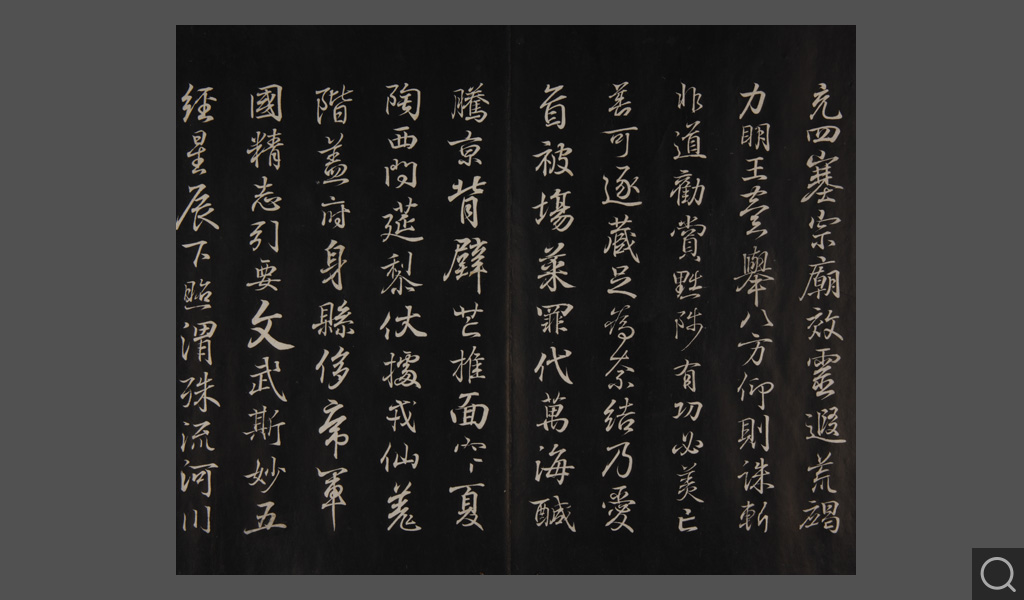 充四塞宗廟效靈遐荒竭
力明王臺舉八方仰則誅斬
非道勸賞黜陟有功必美亡
善可逐藏足為奈結乃愛
首被場萊罪代萬海醎
騰京背壁芒推面穴夏
陶西門筵黎伏據戎仙羌
階蓋府身縣侈帝軍
國精志引要文武斯妙五
經星辰下照渭殊流河川